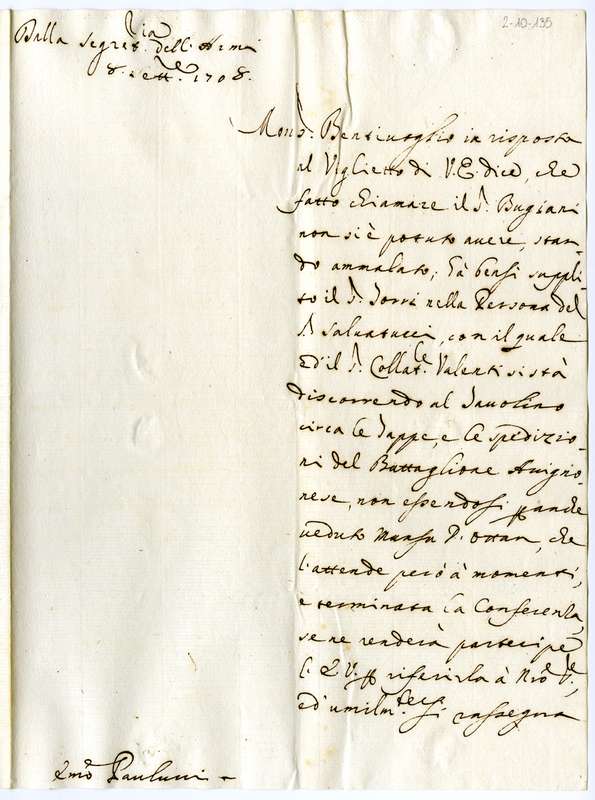 2-10-135
Dalla Segret.ria dell'Armi
8. Sett.re 1708.
Mons.r Bentivoglio in risposta
al Viglietto di V.E. dice, che
fatto chiamare il S.r Bugiani
non si è potuto avere, stan-
do ammalato; hà bensi suppli-
to il S.r Torri nella Persona del
S.r Salvatucci, con il quale
ed'il S.r Collat.le Valenti si stà
discorrendo al Tavolino
circa le Tappe, e le spedizio-
ni del Battaglione Avigno-
nese, non essendosi p anche
veduto Muns.r d'Ottan, che
l'attende però à momenti,
e terminata la Conferenza,
se ne renderà partecipe
l'E.V. p riferirla à Nrò S.re,
ed'umilm.te si rassegna
Emô Paulucci